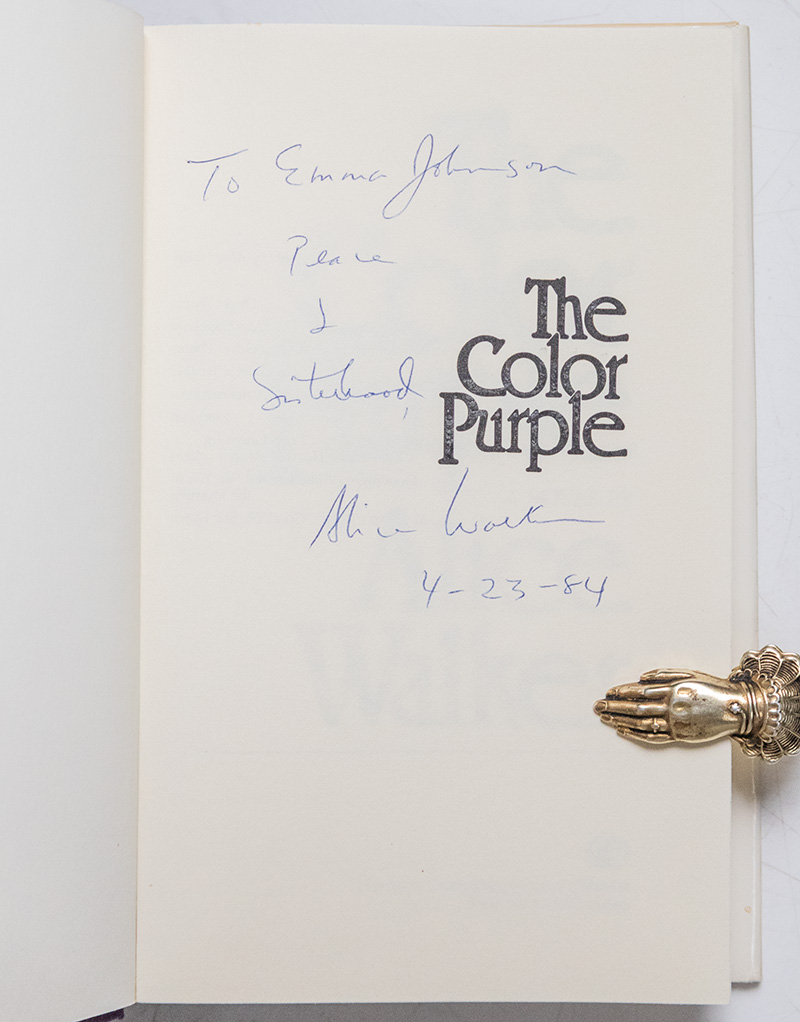 To Emma Johnson
Peace
&
Sisterhood,
The
Color
Purple
Alice Walker
4-23-84